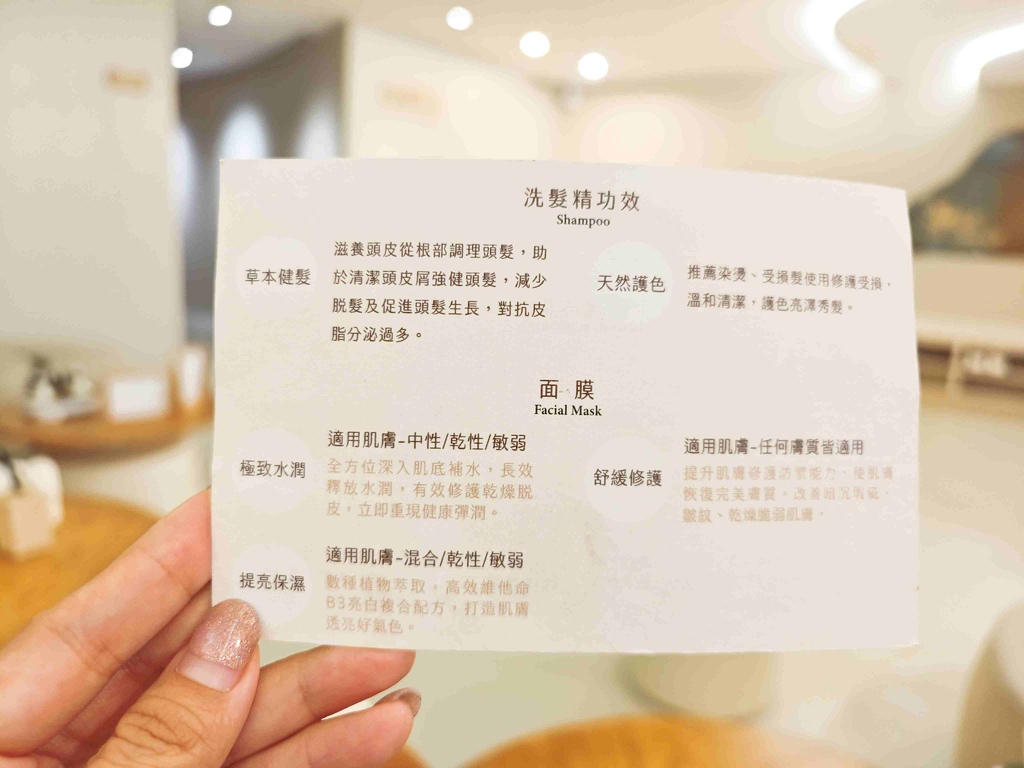 洗髮精功效
Shampoo
草本健髮
滋養頭皮從根部調理頭髮，助
於清潔頭皮屑強健頭髮，減少
脫髮及促進頭髮生長，對抗皮
脂分泌過多。
天然護色
推薦染燙、受損髮使用修護受損，
溫和清潔，護色亮澤秀髮。
面膜
Facial Mask
極致水潤
適用肌膚-中性/乾性/敏弱
全方位深入肌底補水，長效
釋放水潤，有效修護乾燥脫
皮，立即重現健康彈潤。
舒緩修護
適用肌膚-任何膚質皆適用
提升肌膚修護防禦能力、使肌膚
恢復完美膚質。改善暗沉瑕疵、
皺紋、乾燥脆弱肌膚。
提亮保濕
適用肌膚-混合/乾性/敏弱
數種植物萃取，高效維他命
B3亮白複合配方，打造肌膚
透亮好氣色。